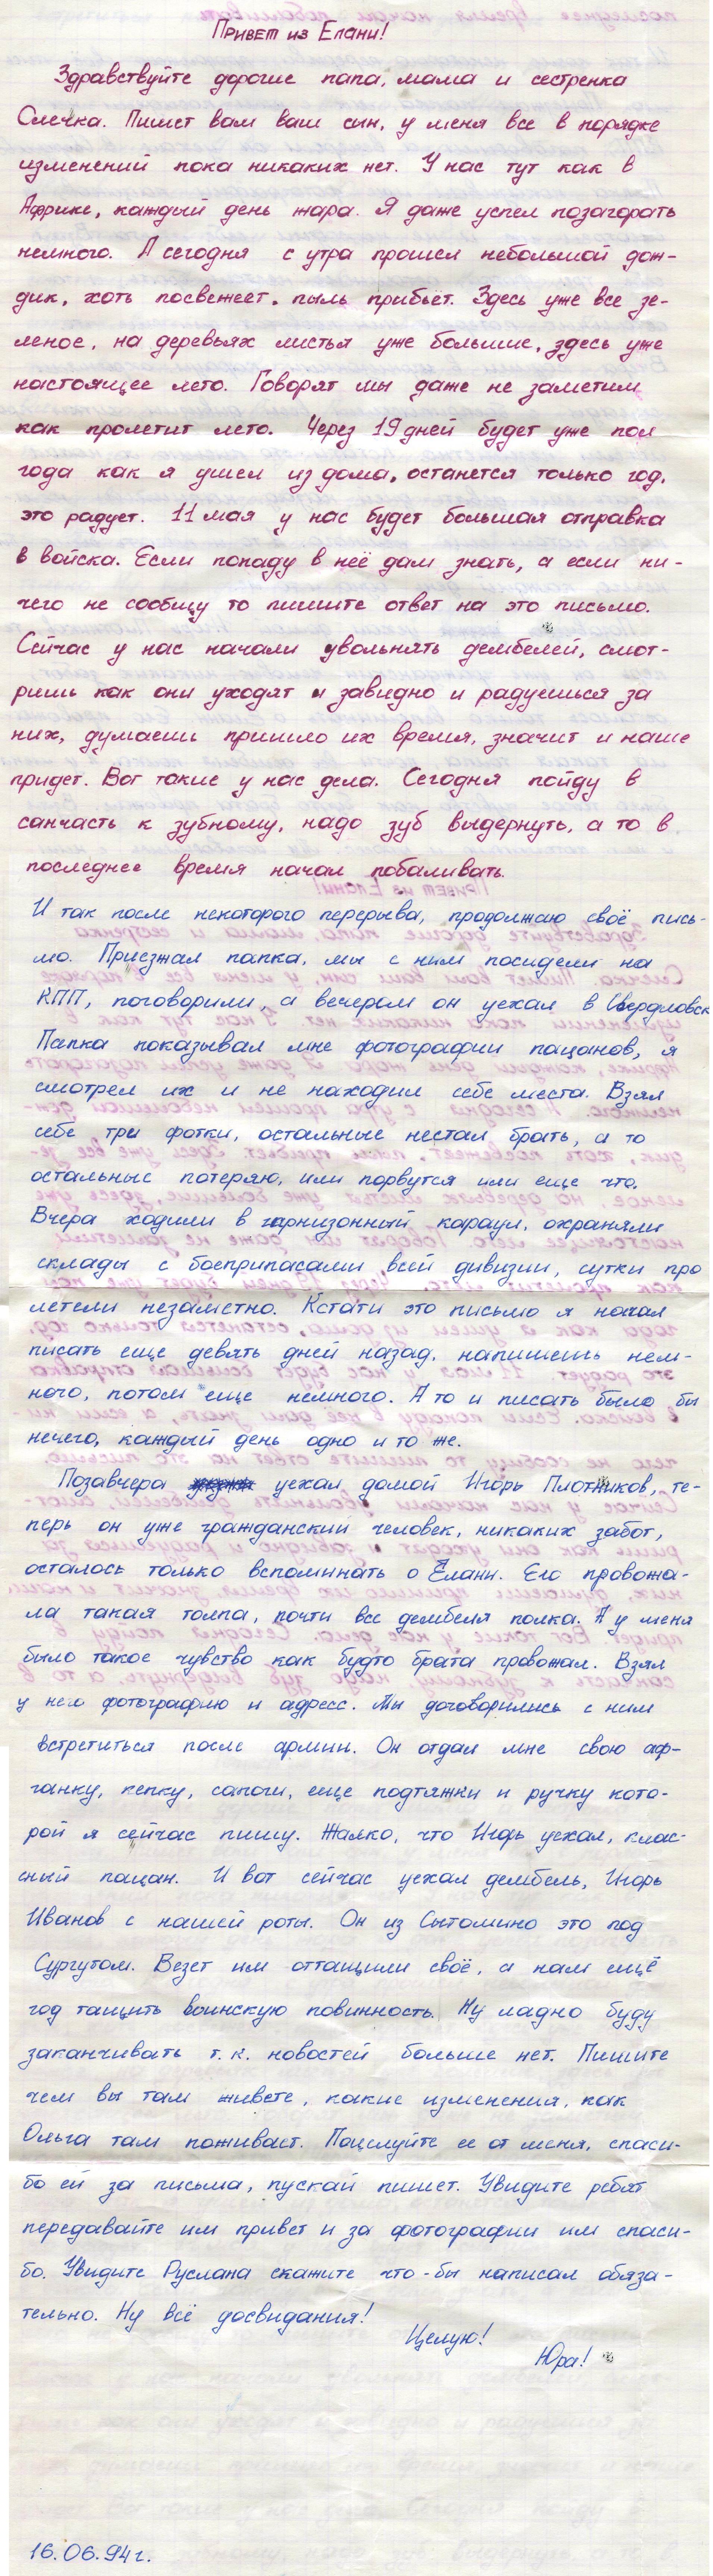 Привет из Елани!
Здравствуйте дорогие папа, мама и сестренка
Олечка. Пишет вам ваш сын, у меня все в порядке
изменений пока никаких нет. У нас тут как в
Африке, каждый день жара. Я даже успел позагорать
немного. А сегодня с утра прошел небольшой дож-
дик, хоть посвежеет, пыль прибьёт. Здесь уже все зе-
леное, на деревьях листья уже большие, здесь уже
настоящее лето. Говорят мы даже не заметим
как пролетит лето. Через 19 дней будет уже пол
года как я ушел из дома, останется только год,
это радует. 11 мая у нас будет большая отправка
в войска. Если попаду в неё дам знать, а если ни-
чего не сообщу то пишите ответ на это письмо.
Сейчас у нас начали увольнять дембелей, смот-
ришь как они уходят и завидно и радуешься за
них, думаешь пришло их время, значит и наше
придет. Вот такие у нас дела. Сегодня пойду в
санчасть к зубному, надо зуб выдернуть, а то в
последнее время начал побаливать.
И так после некоторого перерыва, продолжаю своё пись-
мо. Приезжал папка, мы с ним посидели на
КПП, поговорили, а вечером он уехал в Свердловск
Папка показывал мне фотографии пацанов, я
смотрел их и не находил себе места. Взял
себе три фотки, остальные нестал брать, а то
остальные потеряю, или порвутся или еще что.
Вчера ходили в гарнизонный караул, охраняли
склады с боеприпасами всей дивизии, сутки про
летели незаметно. Кстати это письмо я начал
писать еще девять дней назад, напишешь нем-
ного, потом еще немного. А то и писать было бы
нечего, каждый день одно и то же.
Позавчера уехал домой Игорь Плотников, те-
перь он уже гражданский человек, никаких забот,
осталось только вспоминать о Елани. Его провожа-
ла такая толпа, почти все дембеля полка. А у меня
было такое чувство как будто брата провожал. Взял
у него фотографию и адресс. Мы договорились с ним
встретиться после армии. Он отдал мне свою аф-
ганку, кепку, сапоги, еще подтяжки и ручку кото-
рой я сейчас пишу. Жалко, что Игорь уехал, клас-
сный пацан. И вот сейчас уехал дембель, Игорь
Иванов с нашей роты. Он из Сытомино это под
Сургутом. Везет им оттащили своё, а нам ещё
год тащить воинскую повинность. Ну ладно буду
заканчивать т.к. новостей больше нет. Пишите
чем вы там живете, какие изменения, как
Ольга там поживает. Поцелуйте ее от меня, спаси-
бо ей за письма, пускай пишет. Увидите ребят
передавайте им привет и за фотографии им спаси-
бо. Увидите Руслана скажите что-бы написал обяза-
тельно. Ну всё досвидания!
Целую!
Юра!
16.06.94 г.